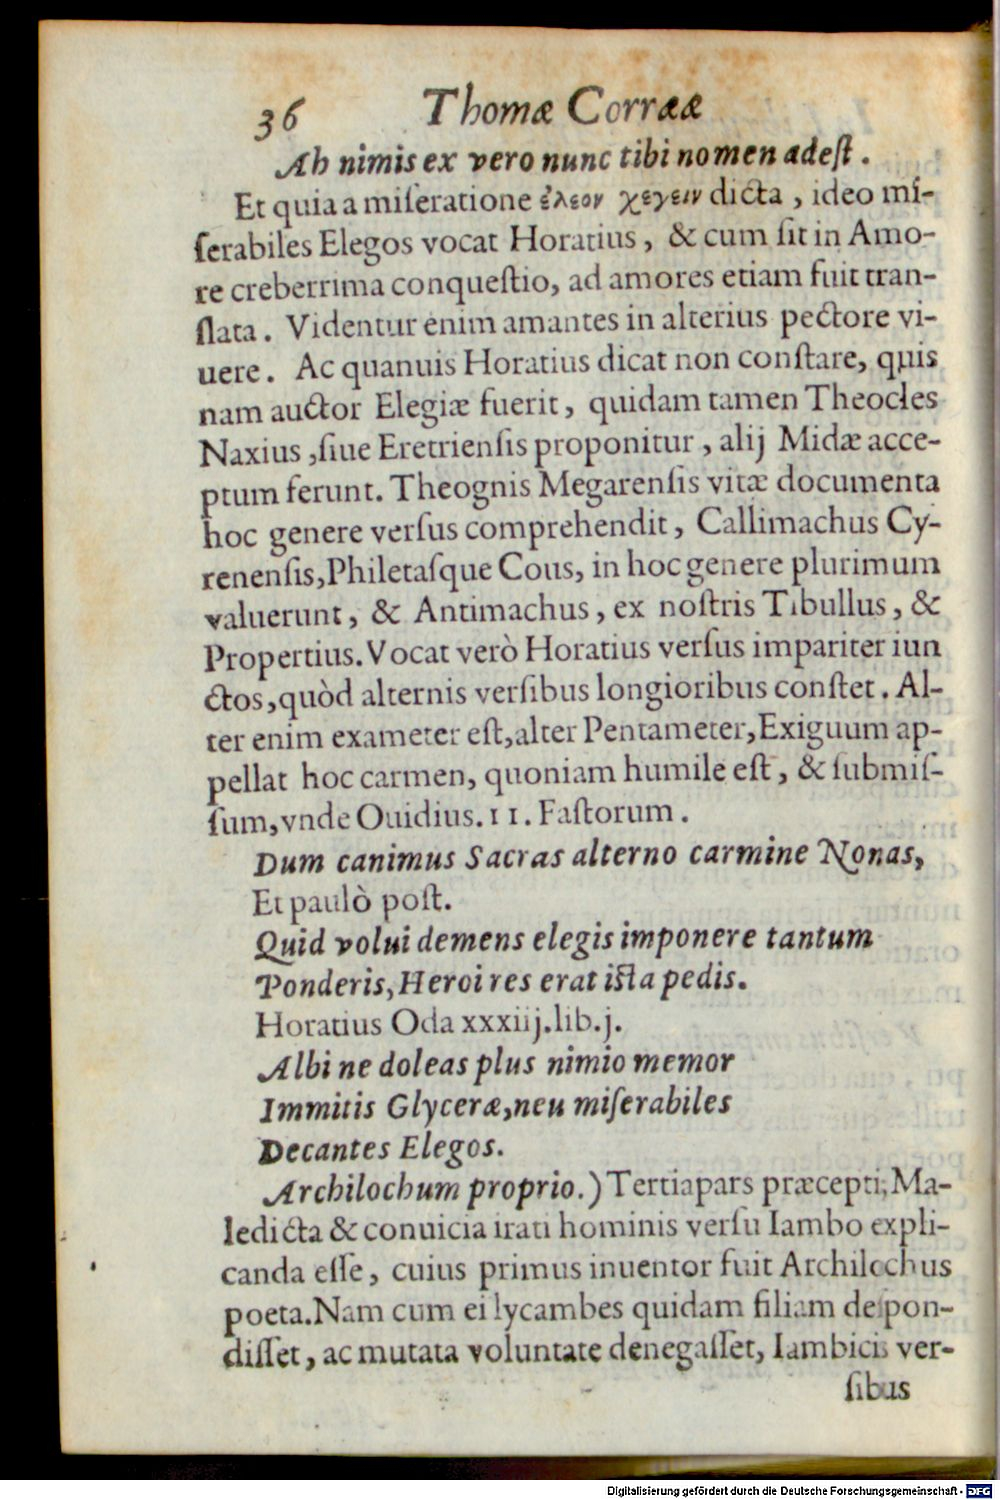 36 Thomæ Corrææ
Ah nimis ex vero nunc tibi nomen adeſt.
Et quia a miſeratione ἐλεον χεγειν dicta, ideo mi-
ſerabiles Elegos vocat Horatius, & cum ſit in Amo-
re creberrima conqueſtio, ad amores etiam fuit tran-
ſlata. Videntur enim amantes in alterius pectore vi-
uere. Ac quanuis Horatius dicat non conſtare, quis
nam auctor Elegiæ fuerit, quidam tamen Theocles
Naxius, ſiue Eretrienſis proponitur, alij Midæ acce-
ptum ferunt. Theognis Megarenſis vitæ documenta
hoc genere verſus comprehendit, Callimachus Cy-
renenſis, Philetaſque Cous, in hoc genere plurimum
valuerunt, & Antimachus, ex noſtris Tibullus, &
Propertius. Vocat verò Horatius verſus impariter iun
ctos, quòd alternis verſibus longioribus conſtet. Al-
ter enim exameter eſt, alter Pentameter, Exiguum ap-
pellat hoc carmen, quoniam humile eſt, & ſubmiſ-
ſum, vnde Ouidius. 11. Faſtorum.
Dum canimus Sacras alterno carmine Nonas,
Et paulò poſt.
Quid volui demens elegis imponere tantum
Ponderis, Heroi res erat iſta pedis.
Horatius Oda xxxiij. lib. j.
Albi ne doleas plus nimio memor
Immitis Glyceræ, neu miſerabiles
Decantes Elegos.
Archilochum proprio.) Tertia pars præcepti, Ma-
ledicta & conuicia irati hominis verſu Iambo expli-
canda eſſe, cuius primus inuentor fuit Archilochus
poeta. Nam cum ei lycambes quidam filiam deſpon-
diſſet, ac mutata voluntate denegaſſet, Iambicis ver-
ſibus
Digitalisierung gefördert durch die Deutsche Forschungsgemeinschaft - DFG